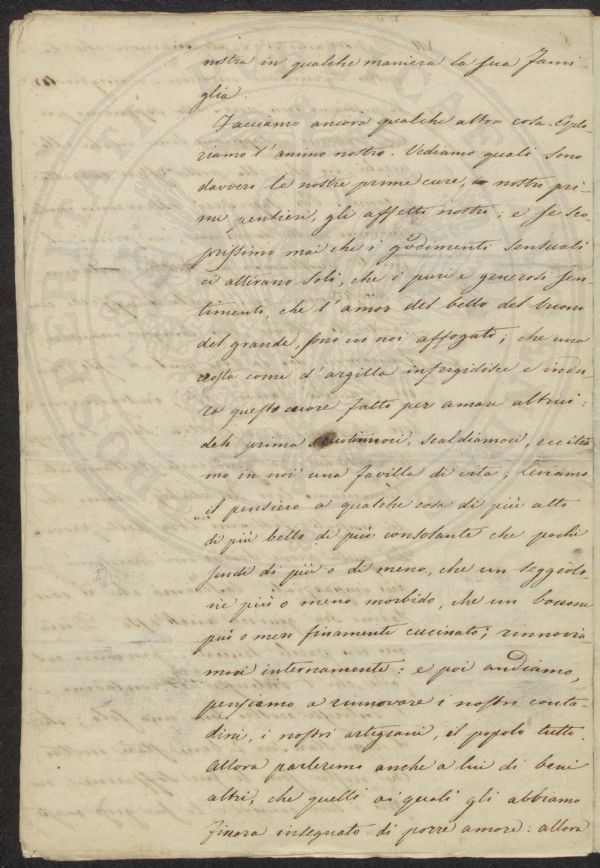 nostra in qualche maniera la sua fami-
glia.
Facciamo ancora qualche altra cosa. Esplo-
riamo l'animo nostro. Vediamo quali sono
davvero le nostre prime cure, i nostri pri-
mi pensieri, gli affetti nostri; e se sco-
prissimo mai che i godimenti sensuali
ci attirano soli, che i puri e generosi sen-
timenti, che l'amor del bello del buono
del grande, sono in noi affogati; che una
crosta come d'argilla infrigidisce e indu-
ra questo cuore fatto per amare altrui:
deh prima scuotiamoci, scaldiamoci, eccitia
mo in noi una favilla di vita, leviamo
il pensiero a qualche cosa di più alto
di più bello di più consolante che pochi
scudi di più o di meno, che un seggiolo-
ne più o meno morbido, che un boccone
più o men finamente cucinato; rinnovia
moci internamente: e poi andiamo,
pensiamo a rinnovare i nostri conta-
dini, i nostri artigiani, il popolo tutto.
Allora parleremo anche a lui di beni
altri, che quelli ai quali gli abbiamo
finora insegnato di porre amore: allora